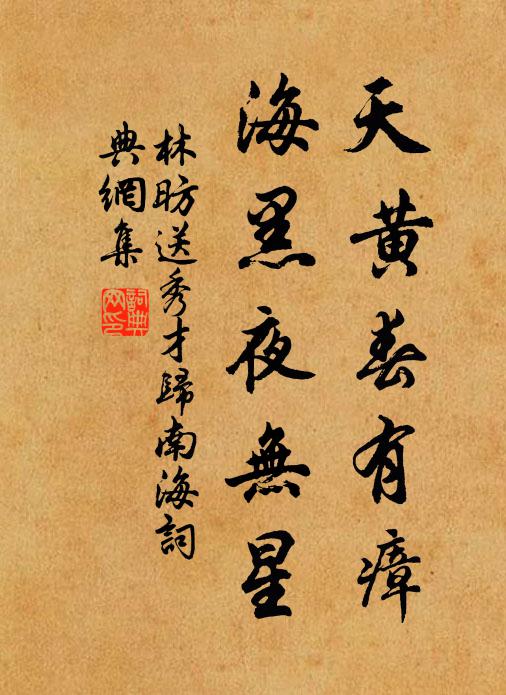 天黃春有瘴
海黑夜無星
林昉送秀才歸南海詞
典網集
詞典網印